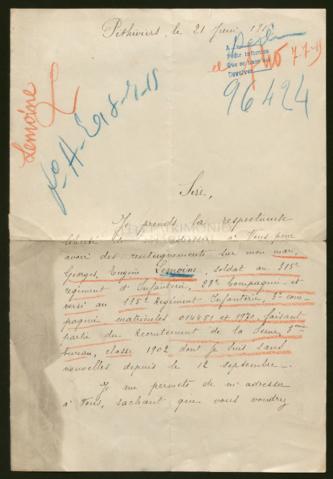 Pithiviers, le 21 Juin 1915
Lemoine
L
7-7-15
96424
Sire,
Je prends la respectueuse
liberté de à Vous, pour
avoir des renseignements sur mon mari,
Georges, Eugène Lemoine, soldat au 315e
régiment d'Infanterie, 28e Compagnie et
versé au 115e Régiment Infanterie, 3e com-
pagnie matricules 014451 et 1970, faisant
partie du Recrutement de la Seine, 3eme
bureau, classe 1902 dont je suis sans
nouvelles depuis le 12 septembre.
Je me permets de m'adresser
à Vous, sachant que vous voudrez